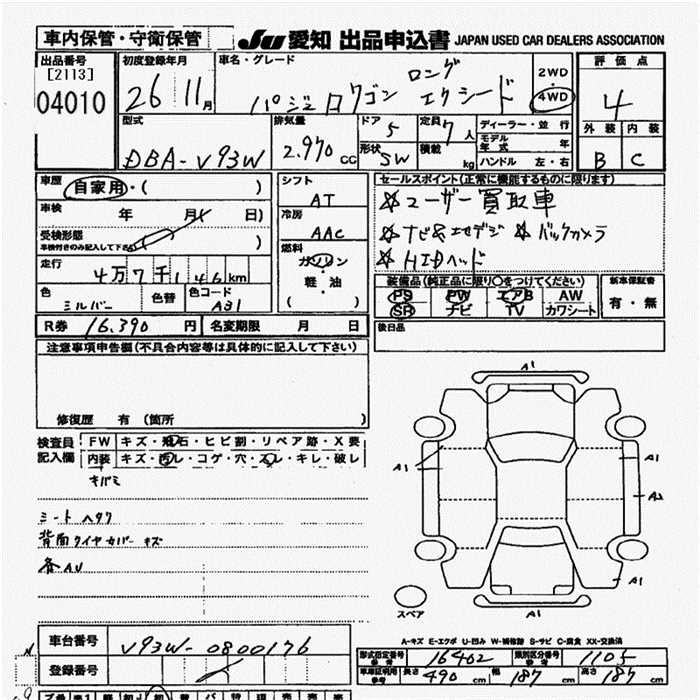 車内保管・守衛保管 JU 愛知 出品申込書 JAPAN USED CAR DEALERS ASSOCIATION
出品番号 [2113] 04010
初度登録年月 26 11月
車名・グレード パジェロワゴン ロング エクシード
2WD 4WD
評価点 4
外装 内装
B C
型式 DBA-V93W
排気量 2.970 cc
ドア 5
形状 SW
定員 7人
積載 kg
ディーラー・並行
モデル年式 年
ハンドル 左・右
車歴 自家用・( )
車検 年 月( 日)
受検形態
車検付きのみ記入して下さい
走行 4万7千146km
色 シルバー 色替 色コード A31
シフト AT
冷房 AAC
燃料 ガソリン・軽・油
( )
セールスポイント(正常に機能するものに限ります)
☆ユーザー買取車
☆ナビ&地デジ ☆バックカメラ
☆HIDヘッド
装備品(純正品に限り○をつけてください)
PS PW エアB AW
SR ナビ TV カワシート
新車保証書
有・無
後日品
R券 16.390 円 名変期限 月 日
注意事項申告欄(不具合内容等は具体的に記入して下さい)
修復歴 有 (箇所 )
検査員記入欄
FW キズ・飛石・ヒビ割・リペア跡・X要
内装 キズ・汚レ・コゲ・穴・スレ・キレ・破レ
キバミ
シート ヘタリ
背面タイヤカバー キズ
各AU
A1
A1
A1
A2
A1
A1
スペア
A-キズ E-エクボ U-凹み W-補修跡 S-サビ C-腐食 XX-交換済
車台番号 V93W-0800176
登録番号
型式指定番号 参考 16402 類別区分番号 参考 1105
車庫証明用 参考 長さ 490 cm 幅 187 cm 高さ 187 cm